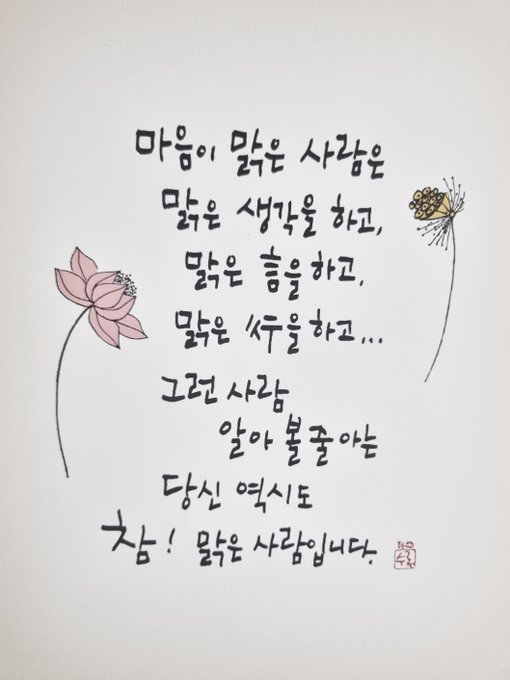 마음이 맑은 사람은
맑은 생각을 하고,
맑은 言을 하고,
맑은 行을 하고...
그런 사람
알아 볼 줄 아는
당신 역시도
참! 맑은 사람입니다.